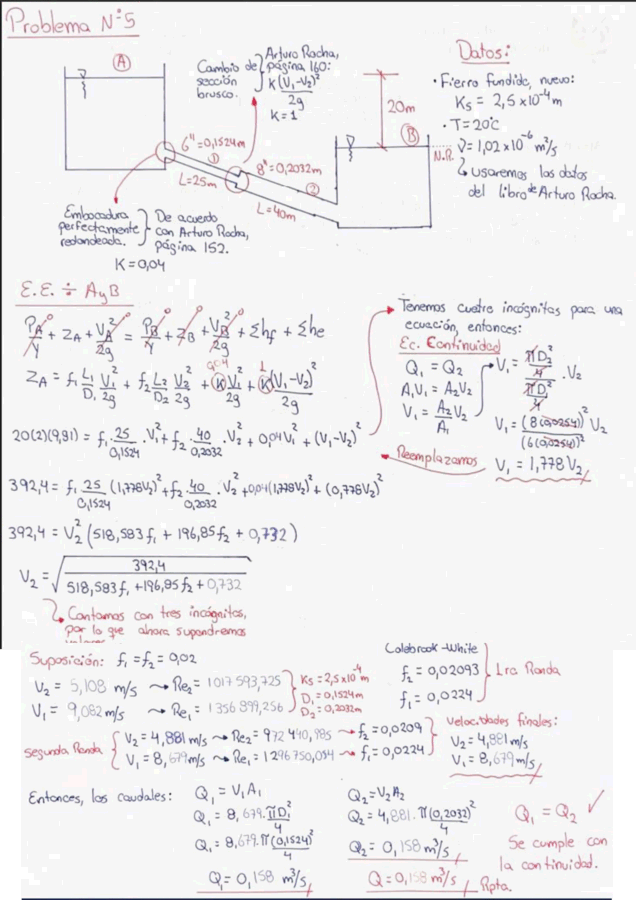 Problema N°5
A
Cambio de sección brusco.
Arturo Rocha, página 160:
K(V₁-V₂)²/2g
K=1
Datos:
• Fierro fundido, nuevo:
Ks = 2,5x10⁻⁴m
• T=20°C
ν=1,02x10⁻⁶ m²/s
↳ usaremos los datos del libro de Arturo Rocha.
20m
B
N.R.
6"=0,1524m
①
L=25m
8"=0,2032m
②
L=40m
Embocadura perfectamente redondeada.
De acuerdo con Arturo Rocha, página 152.
K=0,04
E.E. ÷ A y B
P_A/γ + Z_A + V_A²/2g = P_B/γ + Z_B + V_B²/2g + Σhf + Σhe
Z_A = f₁ L₁/D₁ V₁²/2g + f₂ L₂/D₂ V₂²/2g + K V₁²/2g + K (V₁-V₂)²/2g
0,04
1
20(2)(9,81) = f₁. 25/0,1524 .V₁² + f₂. 40/0,2032 .V₂² + 0,04V₁² + (V₁-V₂)²
Tenemos cuatro incógnitas para una ecuación, entonces:
Ec. Continuidad
Q₁ = Q₂
A₁V₁ = A₂V₂
V₁ = A₂/A₁ V₂
V₁ = (πD₂²/4)/(πD₁²/4) . V₂
V₁ = (8(0,0254))²/(6(0,0254))² V₂
V₁ = 1,778V₂
Reemplazamos
392,4 = f₁. 25/0,1524 (1,778V₂)² + f₂. 40/0,2032 . V₂² + 0,04(1,778V₂)² + (0,778V₂)²
392,4 = V₂² (518,583f₁ + 196,85f₂ + 0,732)
V₂ = √(392,4/(518,583f₁ + 196,85f₂ + 0,732))
↳ Contamos con tres incógnitas,
por lo que ahora supondremos
Suposición: f₁ = f₂ = 0,02
V₂ = 5,108 m/s → Re₂ = 1017593,725
V₁ = 9,082 m/s → Re₁ = 1356899,256
Ks = 2,5x10⁻⁴m
D₁ = 0,1524m
D₂ = 0,2032m
Colebrook-White
f₂ = 0,02093
f₁ = 0,0224
1ra Ronda
Segunda Ronda
V₂ = 4,881m/s → Re₂ = 972440,985 → f₂ = 0,0209
V₁ = 8,679m/s → Re₁ = 1296750,054 → f₁ = 0,0224
Velocidades finales:
V₂ = 4,881m/s
V₁ = 8,679m/s
Entonces, los caudales:
Q₁ = V₁A₁
Q₁ = 8,679. πD₁²/4
Q₁ = 8,679. π(0,1524)²/4
Q₁ = 0,158 m³/s
Q₂ = V₂A₂
Q₂ = 4,881. π(0,2032)²/4
Q₂ = 0,158 m³/s
Q = 0,158 m³/s Rpta.
Q₁ = Q₂ ✓
Se cumple con la continuidad.